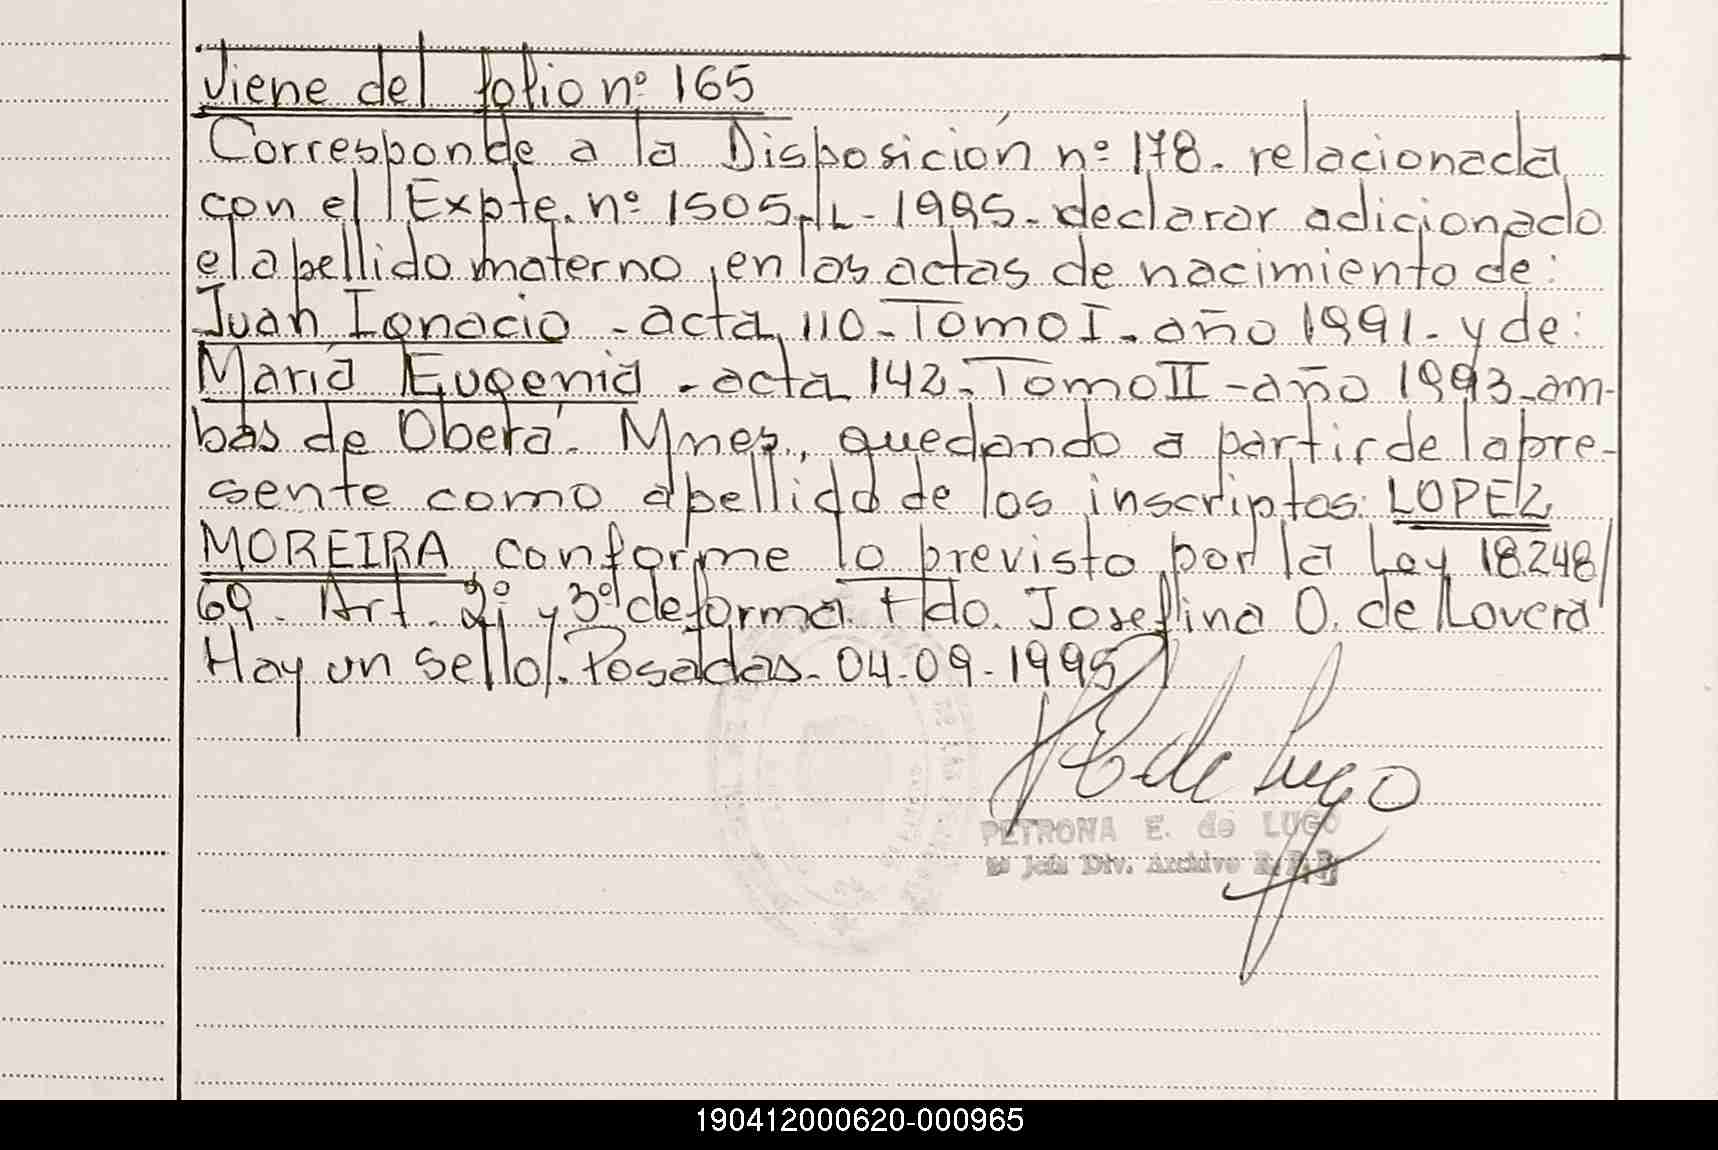 Viene del folio nº 165
Corresponde a la Disposición nº 178. relacionada
con el Expte. nº 1505-L-1995-declarar adicionado
el apellido materno, en las actas de nacimiento de:
Juan Ignacio - acta 110-Tomo I. año 1991-y de:
María Eugenia - acta 142-Tomo II-año 1993-am-
bas de Oberá. Mnes, quedando a partir de la pre-
sente como apellido de los inscriptos: LOPEZ
MOREIRA, conforme lo previsto por la Ley 18.248/
69. Art. 2º y 3º de forma. Fdo. Josefina O. de Lovera
Hay un sello/. Posadas-04-09-1995
PETRONA E. de LUGO
Div. Archivo
190412000620-000965